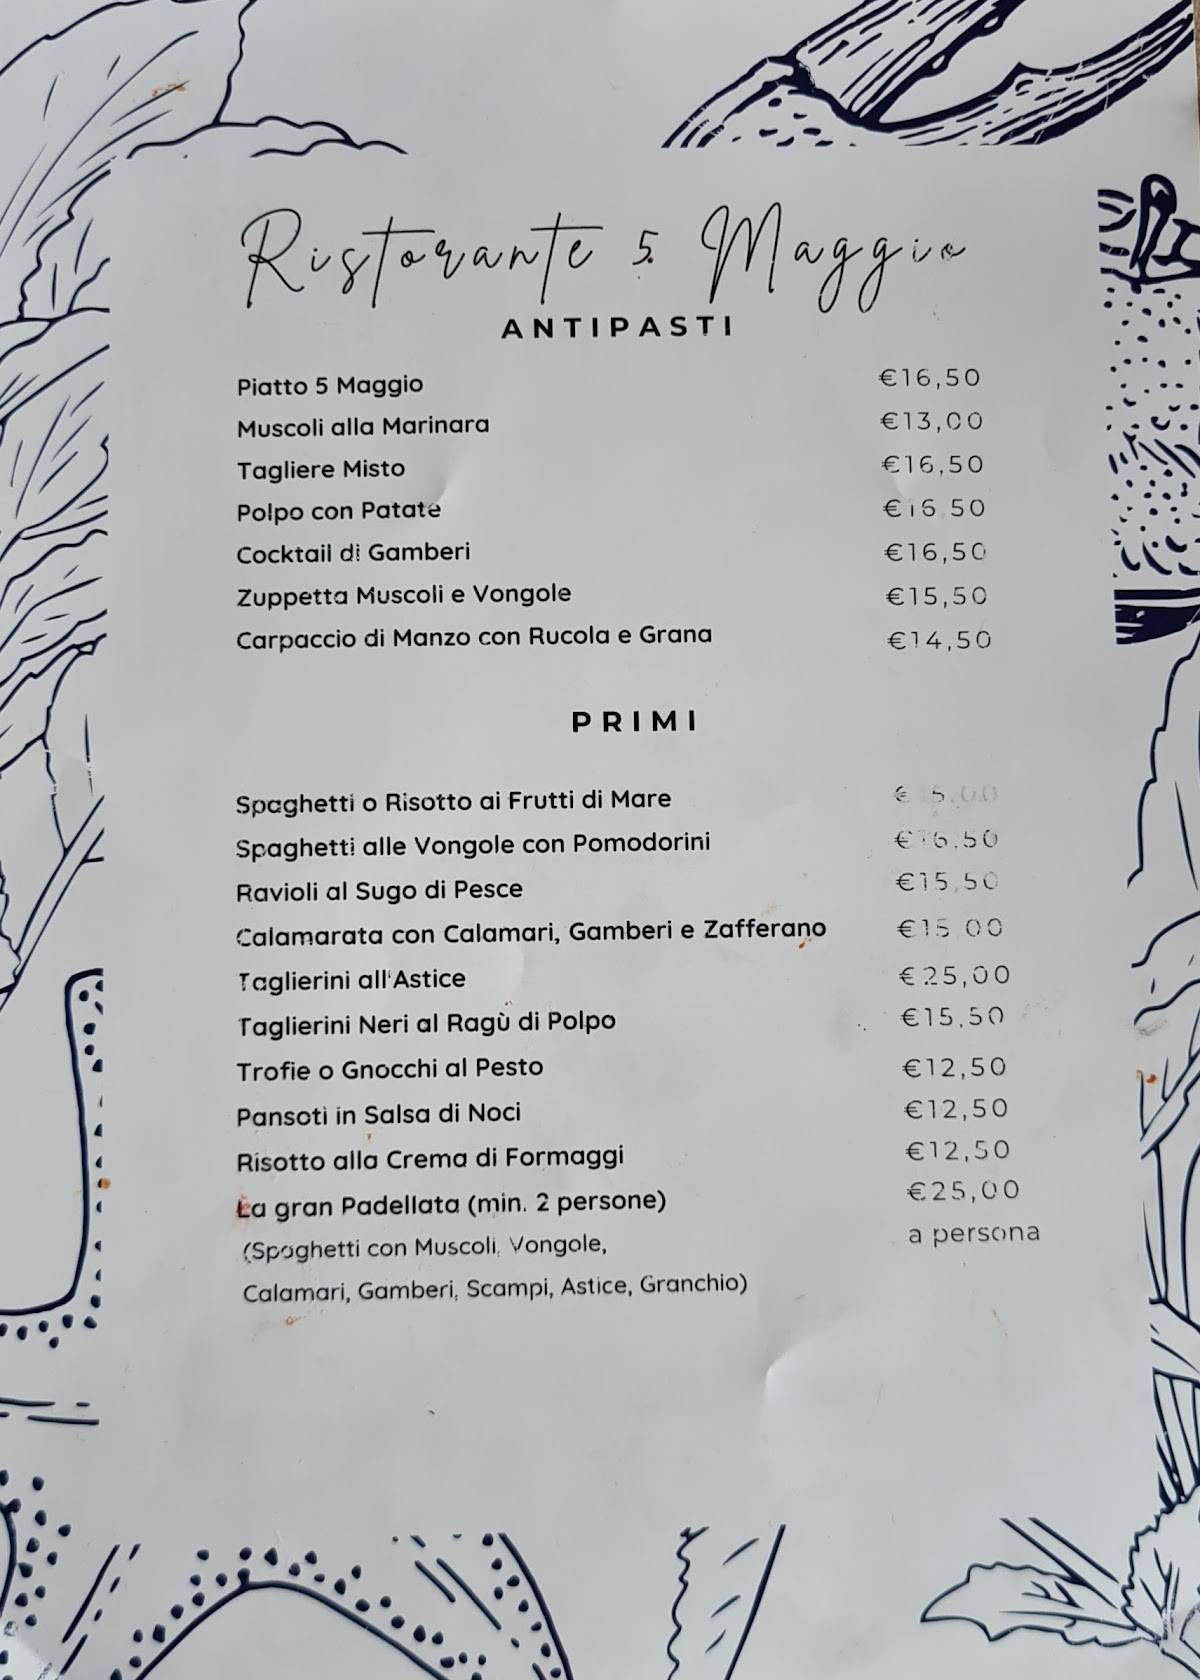 Ristorante 5 Maggio
ANTIPASTI
Piatto 5 Maggio €16,50
Muscoli alla Marinara €13,00
Tagliere Misto €16,50
Polpo con Patate €16,50
Cocktail di Gamberi €16,50
Zuppetta Muscoli e Vongole €15,50
Carpaccio di Manzo con Rucola e Grana €14,50
PRIMI
Spaghetti o Risotto ai Frutti di Mare
Spaghetti alle Vongole con Pomodorini €16,50
Ravioli al Sugo di Pesce €15,50
Calamarata con Calamari, Gamberi e Zafferano €15,00
Taglierini all'Astice €25,00
Taglierini Neri al Ragù di Polpo €15,50
Trofie o Gnocchi al Pesto €12,50
Pansoti in Salsa di Noci €12,50
Risotto alla Crema di Formaggi €12,50
La gran Padellata (min. 2 persone) €25,00
(Spaghetti con Muscoli, Vongole, a persona
Calamari, Gamberi, Scampi, Astice, Granchio)